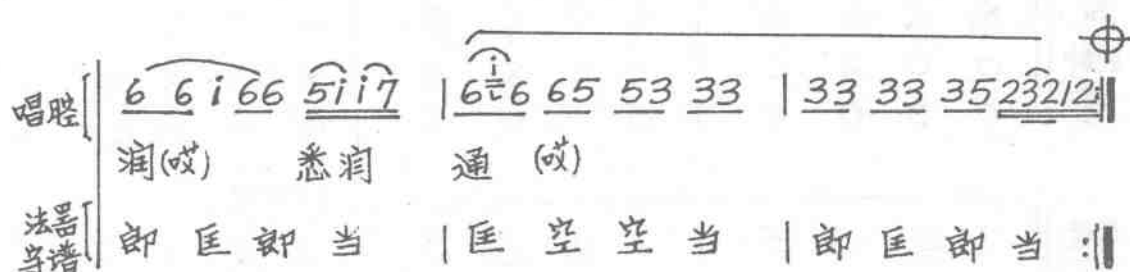 唱腔 6 6 i 66 5i i7 | 6 i 6 65 53 33 | 33 33 35 23212 :‖
润(哎) 悉润 通 (哎)
法器字谱 郎 匡 郎 当 | 匡 空 空 当 | 郎 匡 郎 当 :‖